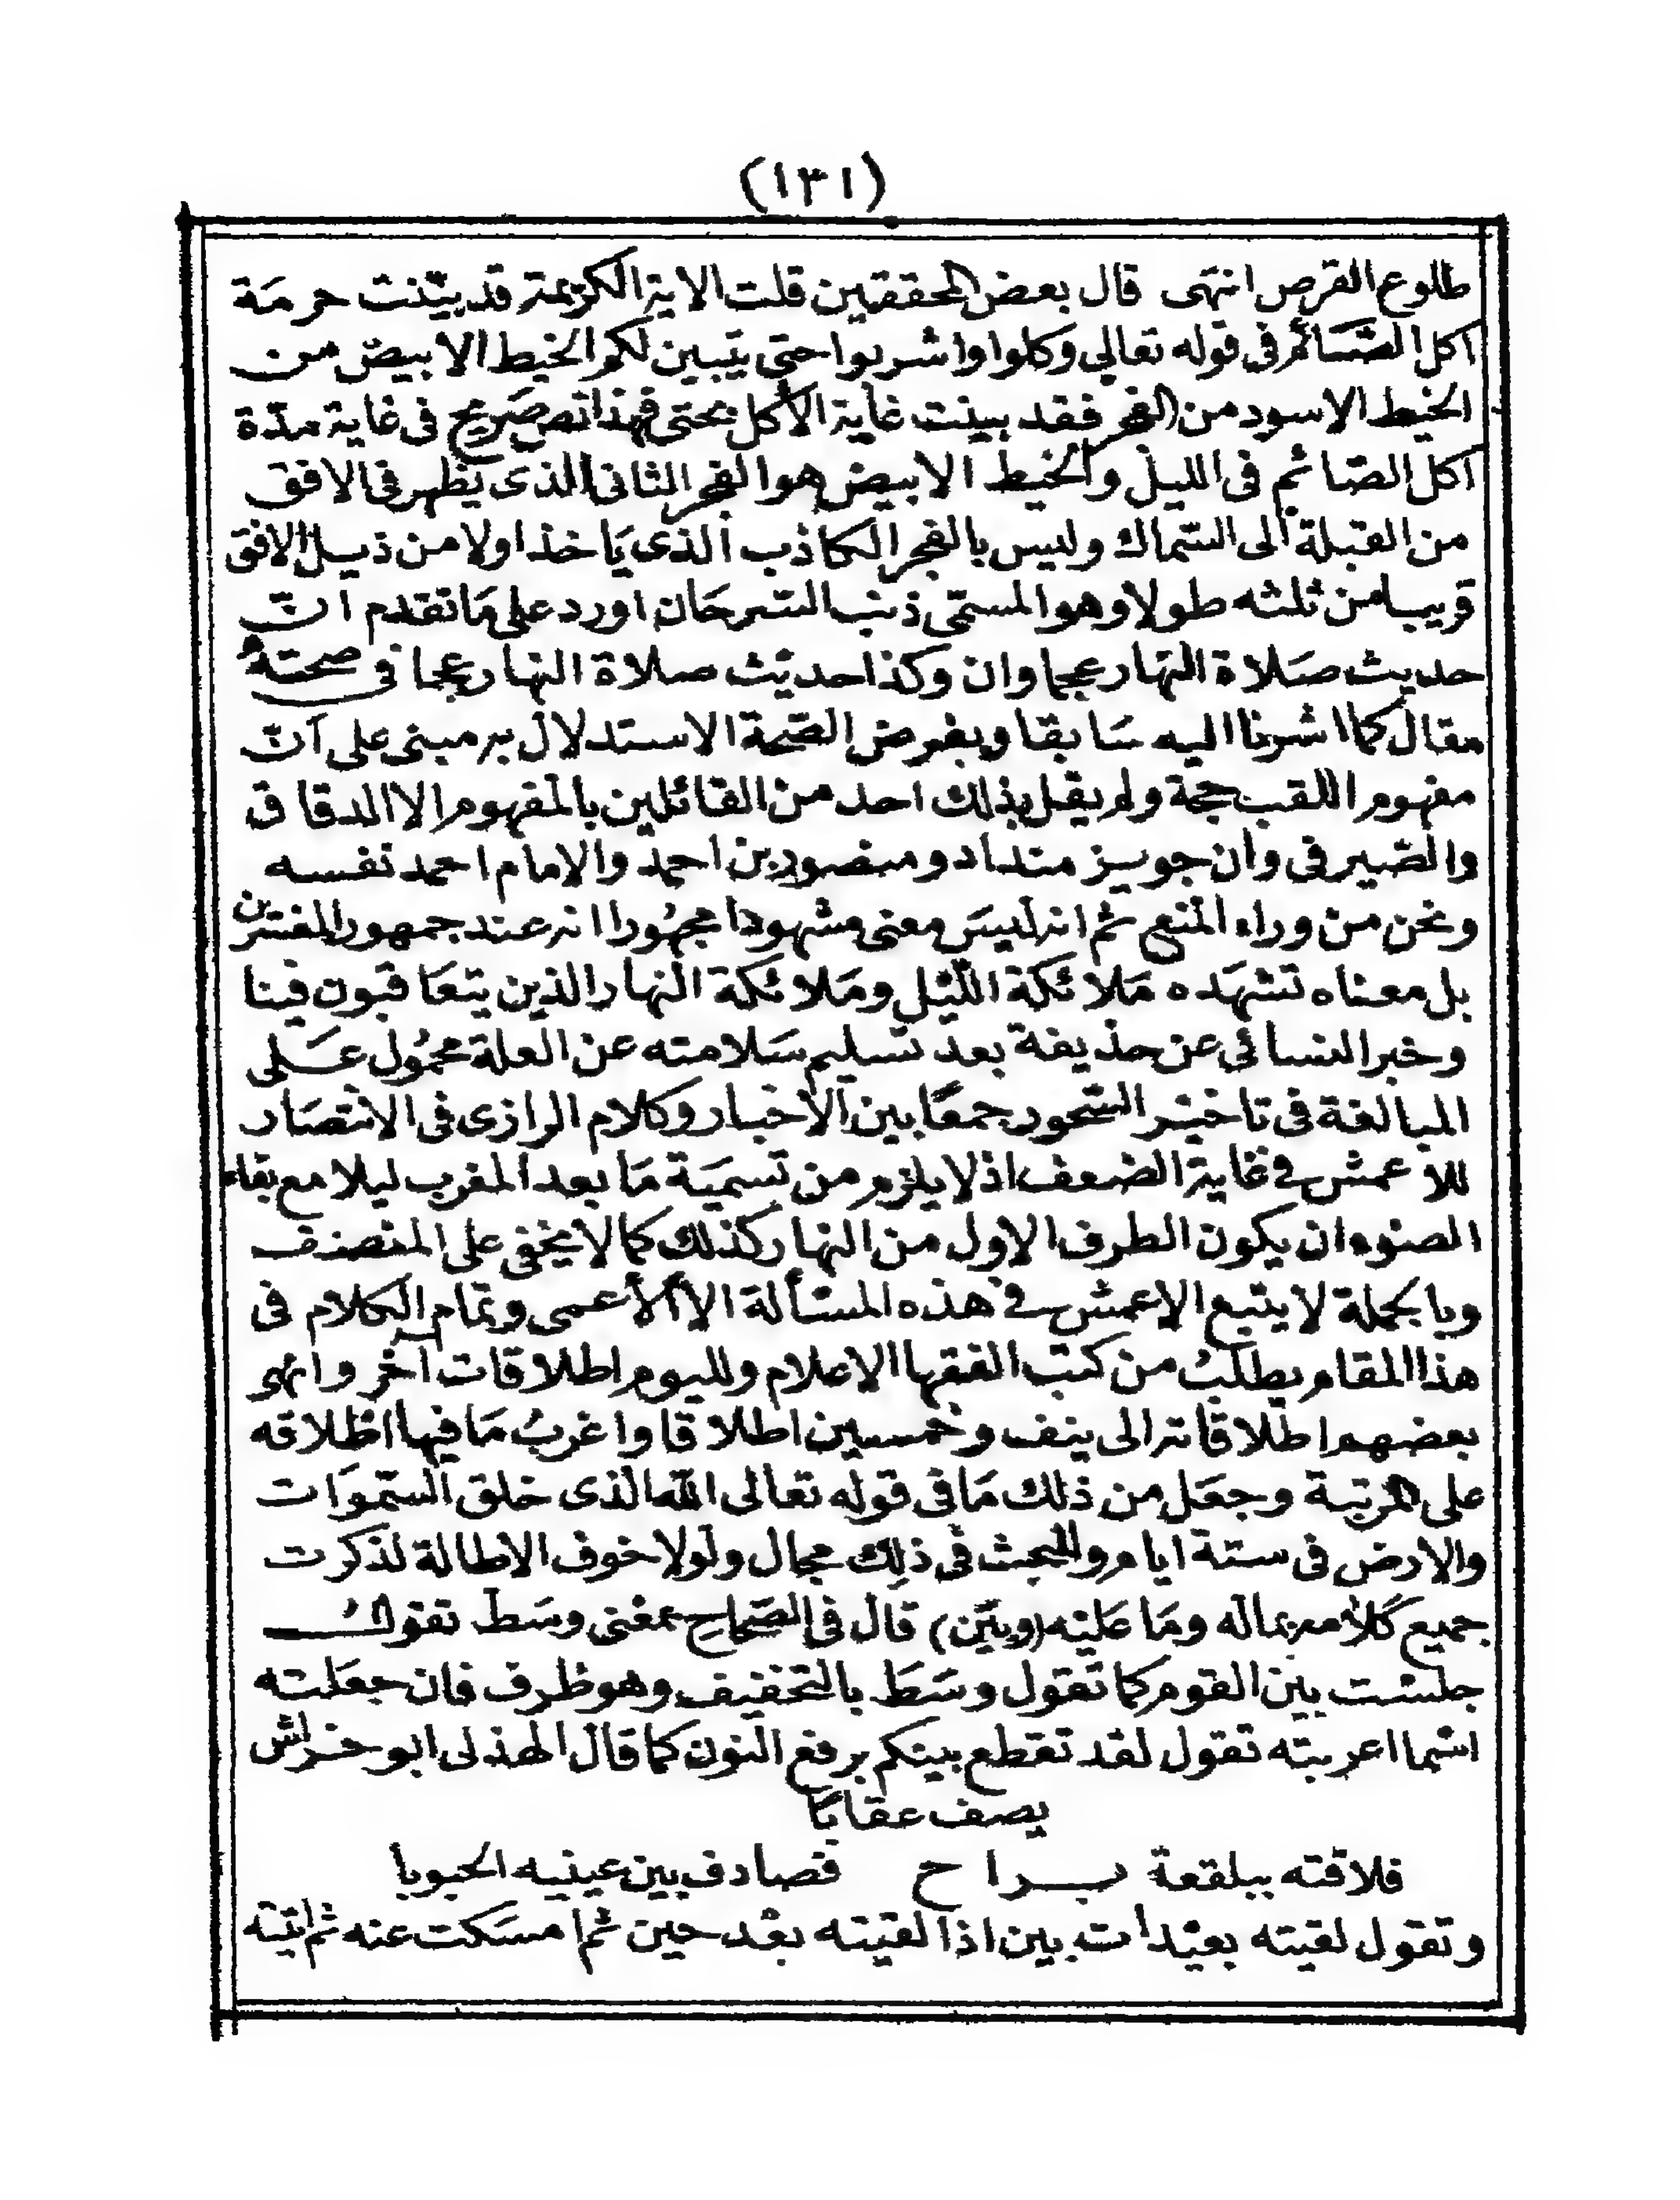 (١٣١)
طلوع القرص انتهى قال بعض المحققين قلت الاية الكريمة قد بينت حرمة
اكل الصائم فى قوله تعالى وكلوا واشربوا حتى يتبين لكم الخيط الابيض من
الخيط الاسود من الفجر فقد بينت غاية الأكل بحتى فهذا نص صريح فى غاية مدّة
اكل الصّائم فى الليل والخيط الابيض هو الفجر الثانى الذى يظهر فى الافق
من القبلة الى السماك وليس بالفجر الكاذب الذى ياخذ اولا من ذيل الافق
قريبا من ثلثه طولا وهو المسمّى ذنب السّرحَان اورد على مَا تقدم انّ
حديث صَلاة النهار عجما وان وكذا حديث صلاة النهار عجما فى صحتهُ
مقال كما اشرنا اليه سَابقا وبفرض الصّحة الاستدلال به مبنى على انّ
مفهوم اللقب حجة ولم يقل بذلك احد من القائلين بالمفهوم الا الدقاق
والصّيرفى وان جويز منداد ومنصور بن احمد والامام احمد نفسه
ونحن من وراء المنع ثم انه ليسَ معنى مشهودا مجهُورا انه عند جمهور المفسّرين
بل معناه تشهَده مَلائكة الليْل ومَلائكة النهار الذين يتعَاقبَون فينا
وخبر النسائى عن حذيفة بعد تسليم سَلامته عن العلة محمُول عَلى
المبالغة فى تاخيْر السّحور جمعًا بين الأخبار وكلام الرازى فى الانتصَار
للأعمش فى غاية الضعف اذ لا يلزم من تسميَة مَا بعد المغرب ليلا مع بقاء
الضوء ان يكون الطرف الاول من النهار كذلك كما لا يخفى على المنصف
وبالجملة لا يتبع الاعمش فى هذه المسْألة الا الأعمى وتمام الكلام فى
هذا المقام يطلبُ من كتب الفقها الاعلام ولليوم اطلاقات آخر وانهى
بعضهم اطلاقاته الى ينف وخمسين اطلاقا واغربُ مَا فيها اطلاقه
على المرتبة وجعَل من ذلك مَا فى قوله تعالى اللّه الذى خلق السّموَات
والارض فى ستة ايام وللبحث فى ذلك مجال ولولا خوف الاطالة لذكرت
جميع كلامه بماله ومَا عليْه (وبيْن) قال فى الصّحاحِ بمعْنى وسَط تقول
جلسْت بين القوم كما تقول وسَط بالتخفيف وهو ظرف فان جعَلته
اسْما اعربته تقول لقد تقطع بينكم برفع النون كما قال الهذلى ابو خراش
يصف عقابًا
فلاقته ببلقعة بـراح فصادف بين عينيه الحبوبا
وتقول لقيته بعيْدات بين اذا لقيته بعْد حين ثم امسَكت عنه ثم اتيته